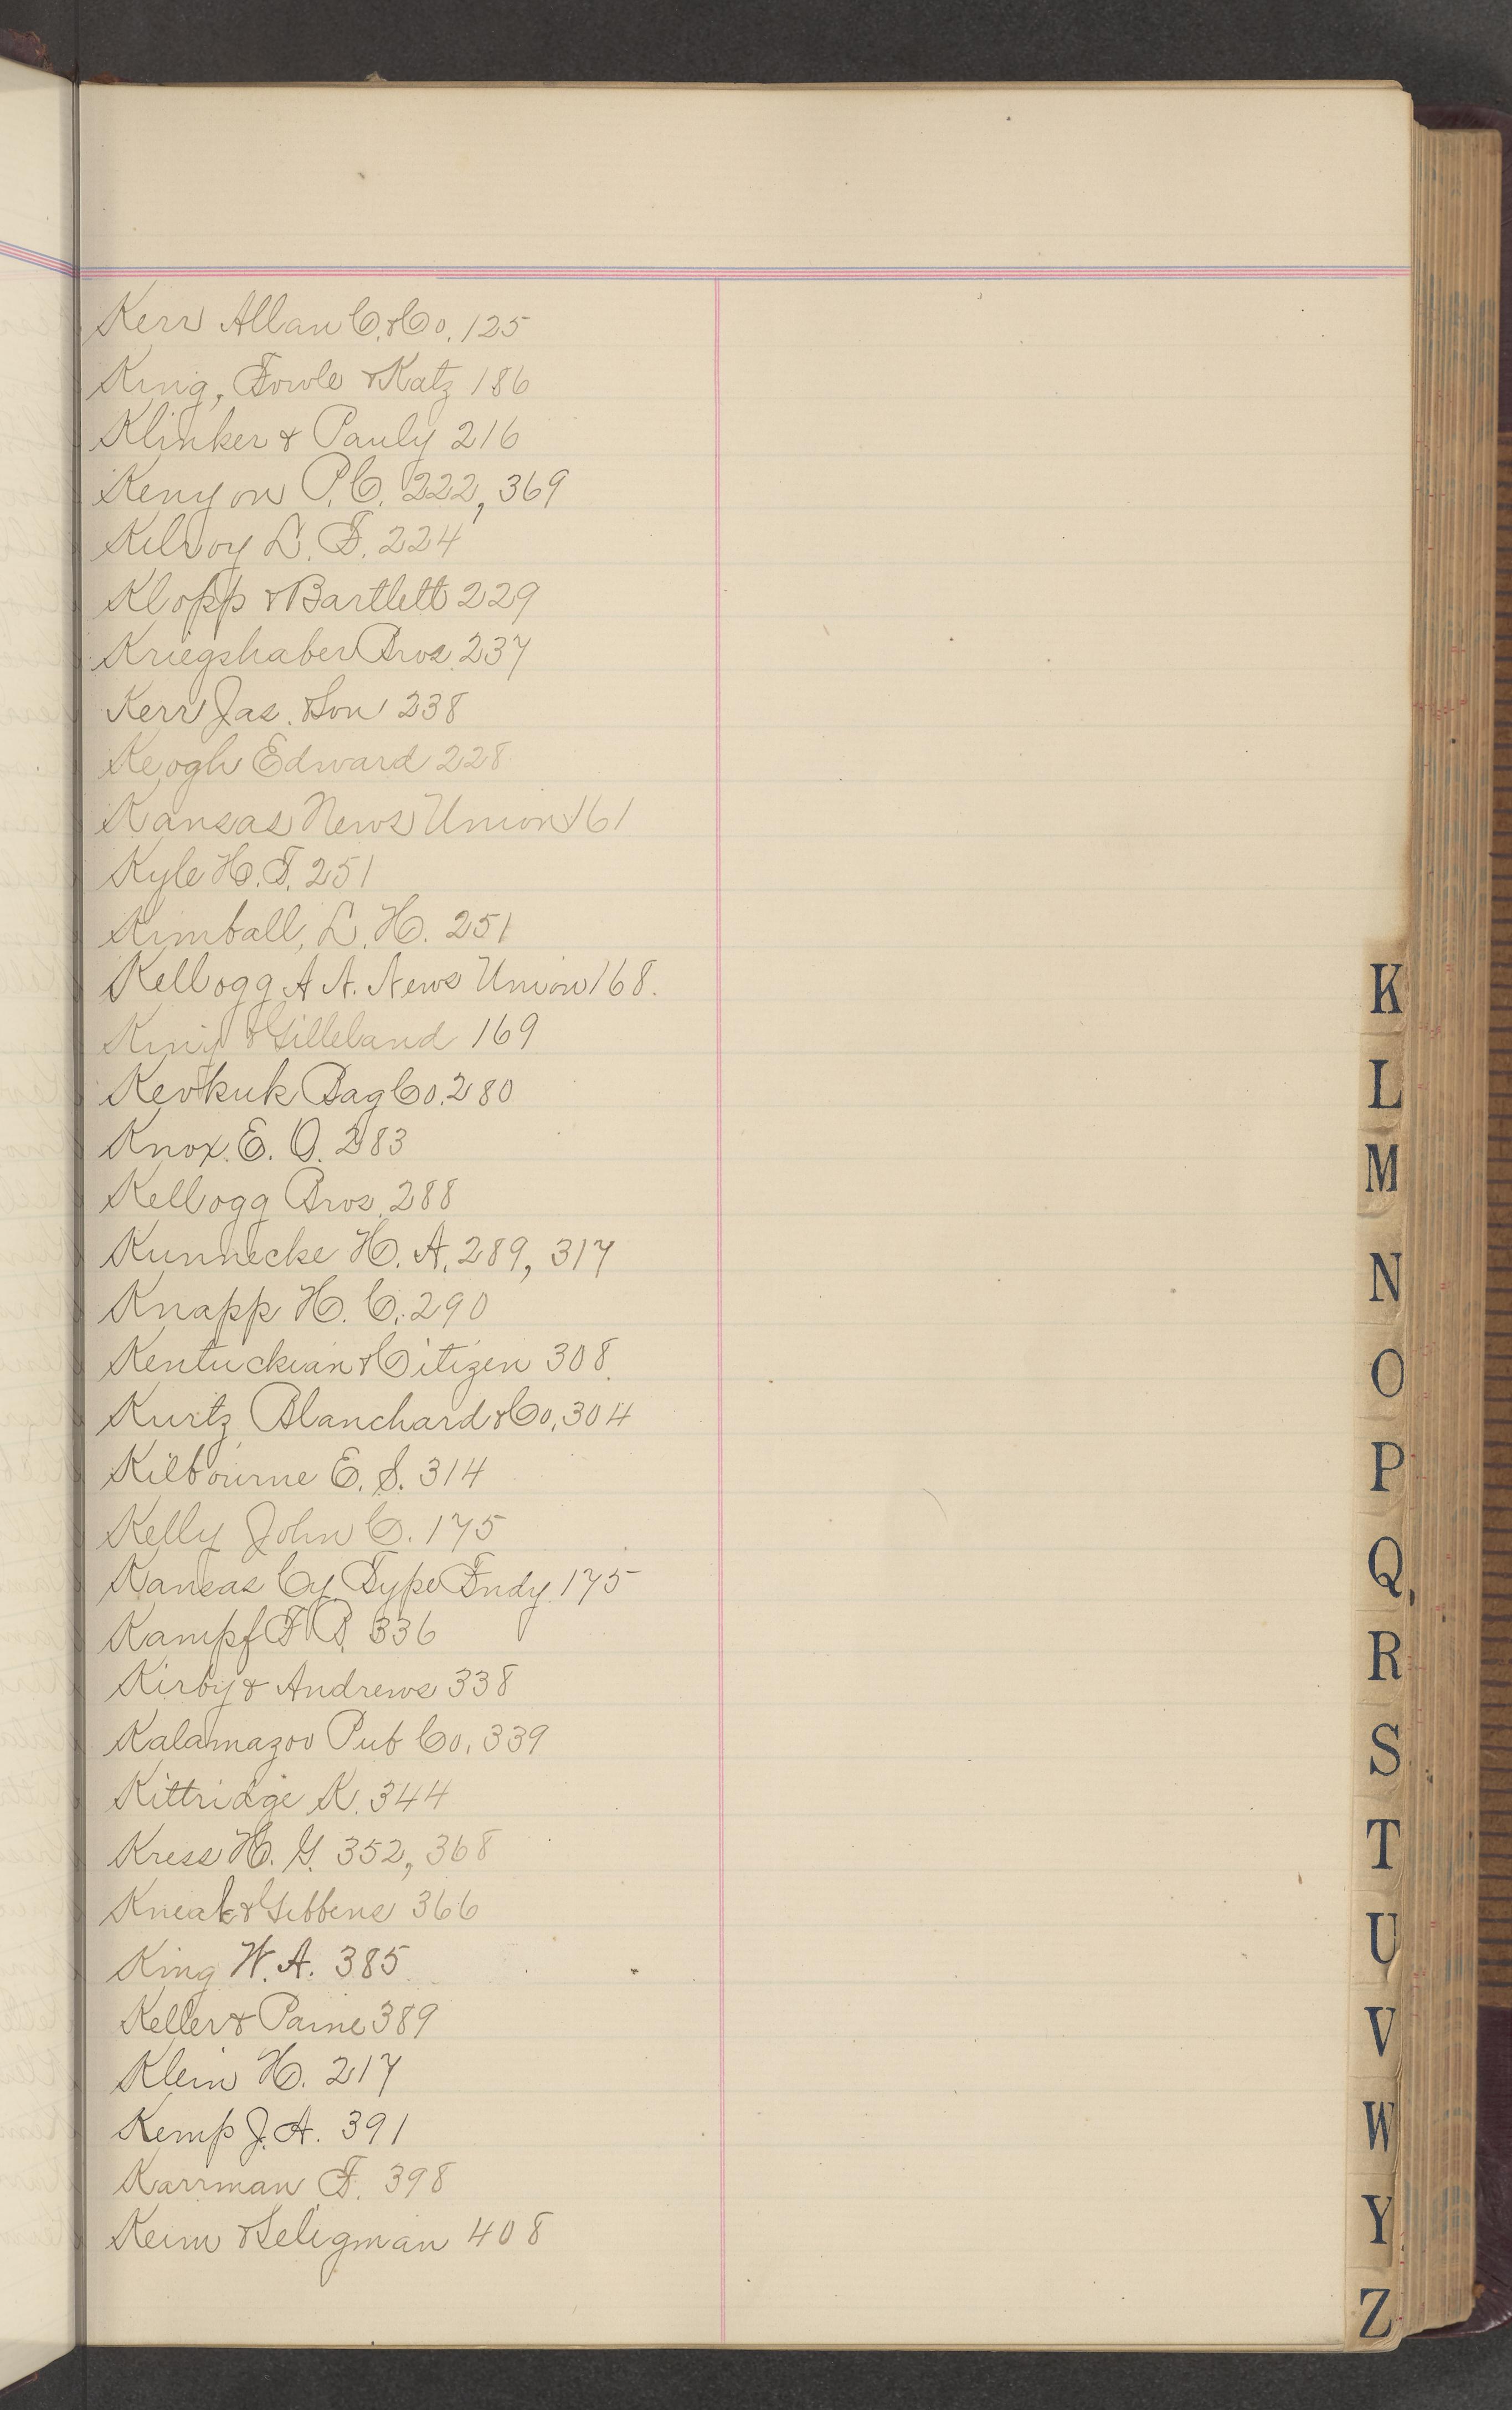 Kerr Allan C. & Co. 125
King, Fowle & Katz 186
Klinker & Pauly 216
Kenyon P. C. 222, 369
Kilroy L. F. 224
Klopp & Bartlett 229
Kriegshaber Bros. 237
Kerr Jas. & Son 238
Keogh Edward 228
Kansas News Union 161
Kyle H. T. 251
Kimball, L. H. 251
Kellogg A N. News Union 168.
King & Gilleland 169
Keokuk Bag Co. 280
Knox. E. O. 283
Kellogg Bros. 288
Kunnecke H. A. 289, 317
Knapp H. C. 290
Kentuckian & Citizen 308.
Kurtz Blanchard & Co. 304
Kilbourne E. S. 314
Kelly John C. 175
Kansas Cy Type Fndy. 175
Kampf F P. 336
Kirby & Andrews 338
Kalamazoo Pub Co. 339
Kittridge K. 344
Kress H. G. 352, 368
& Gibbens 366
King W. A. 385
Keller & Paine 389
Klein H. 217
Kemp J. A. 391
Karrman F. 398
Keim & Seligman 408
K
L
M
N
O
P
Q,
R
S
T
U
V
W
Y
Z